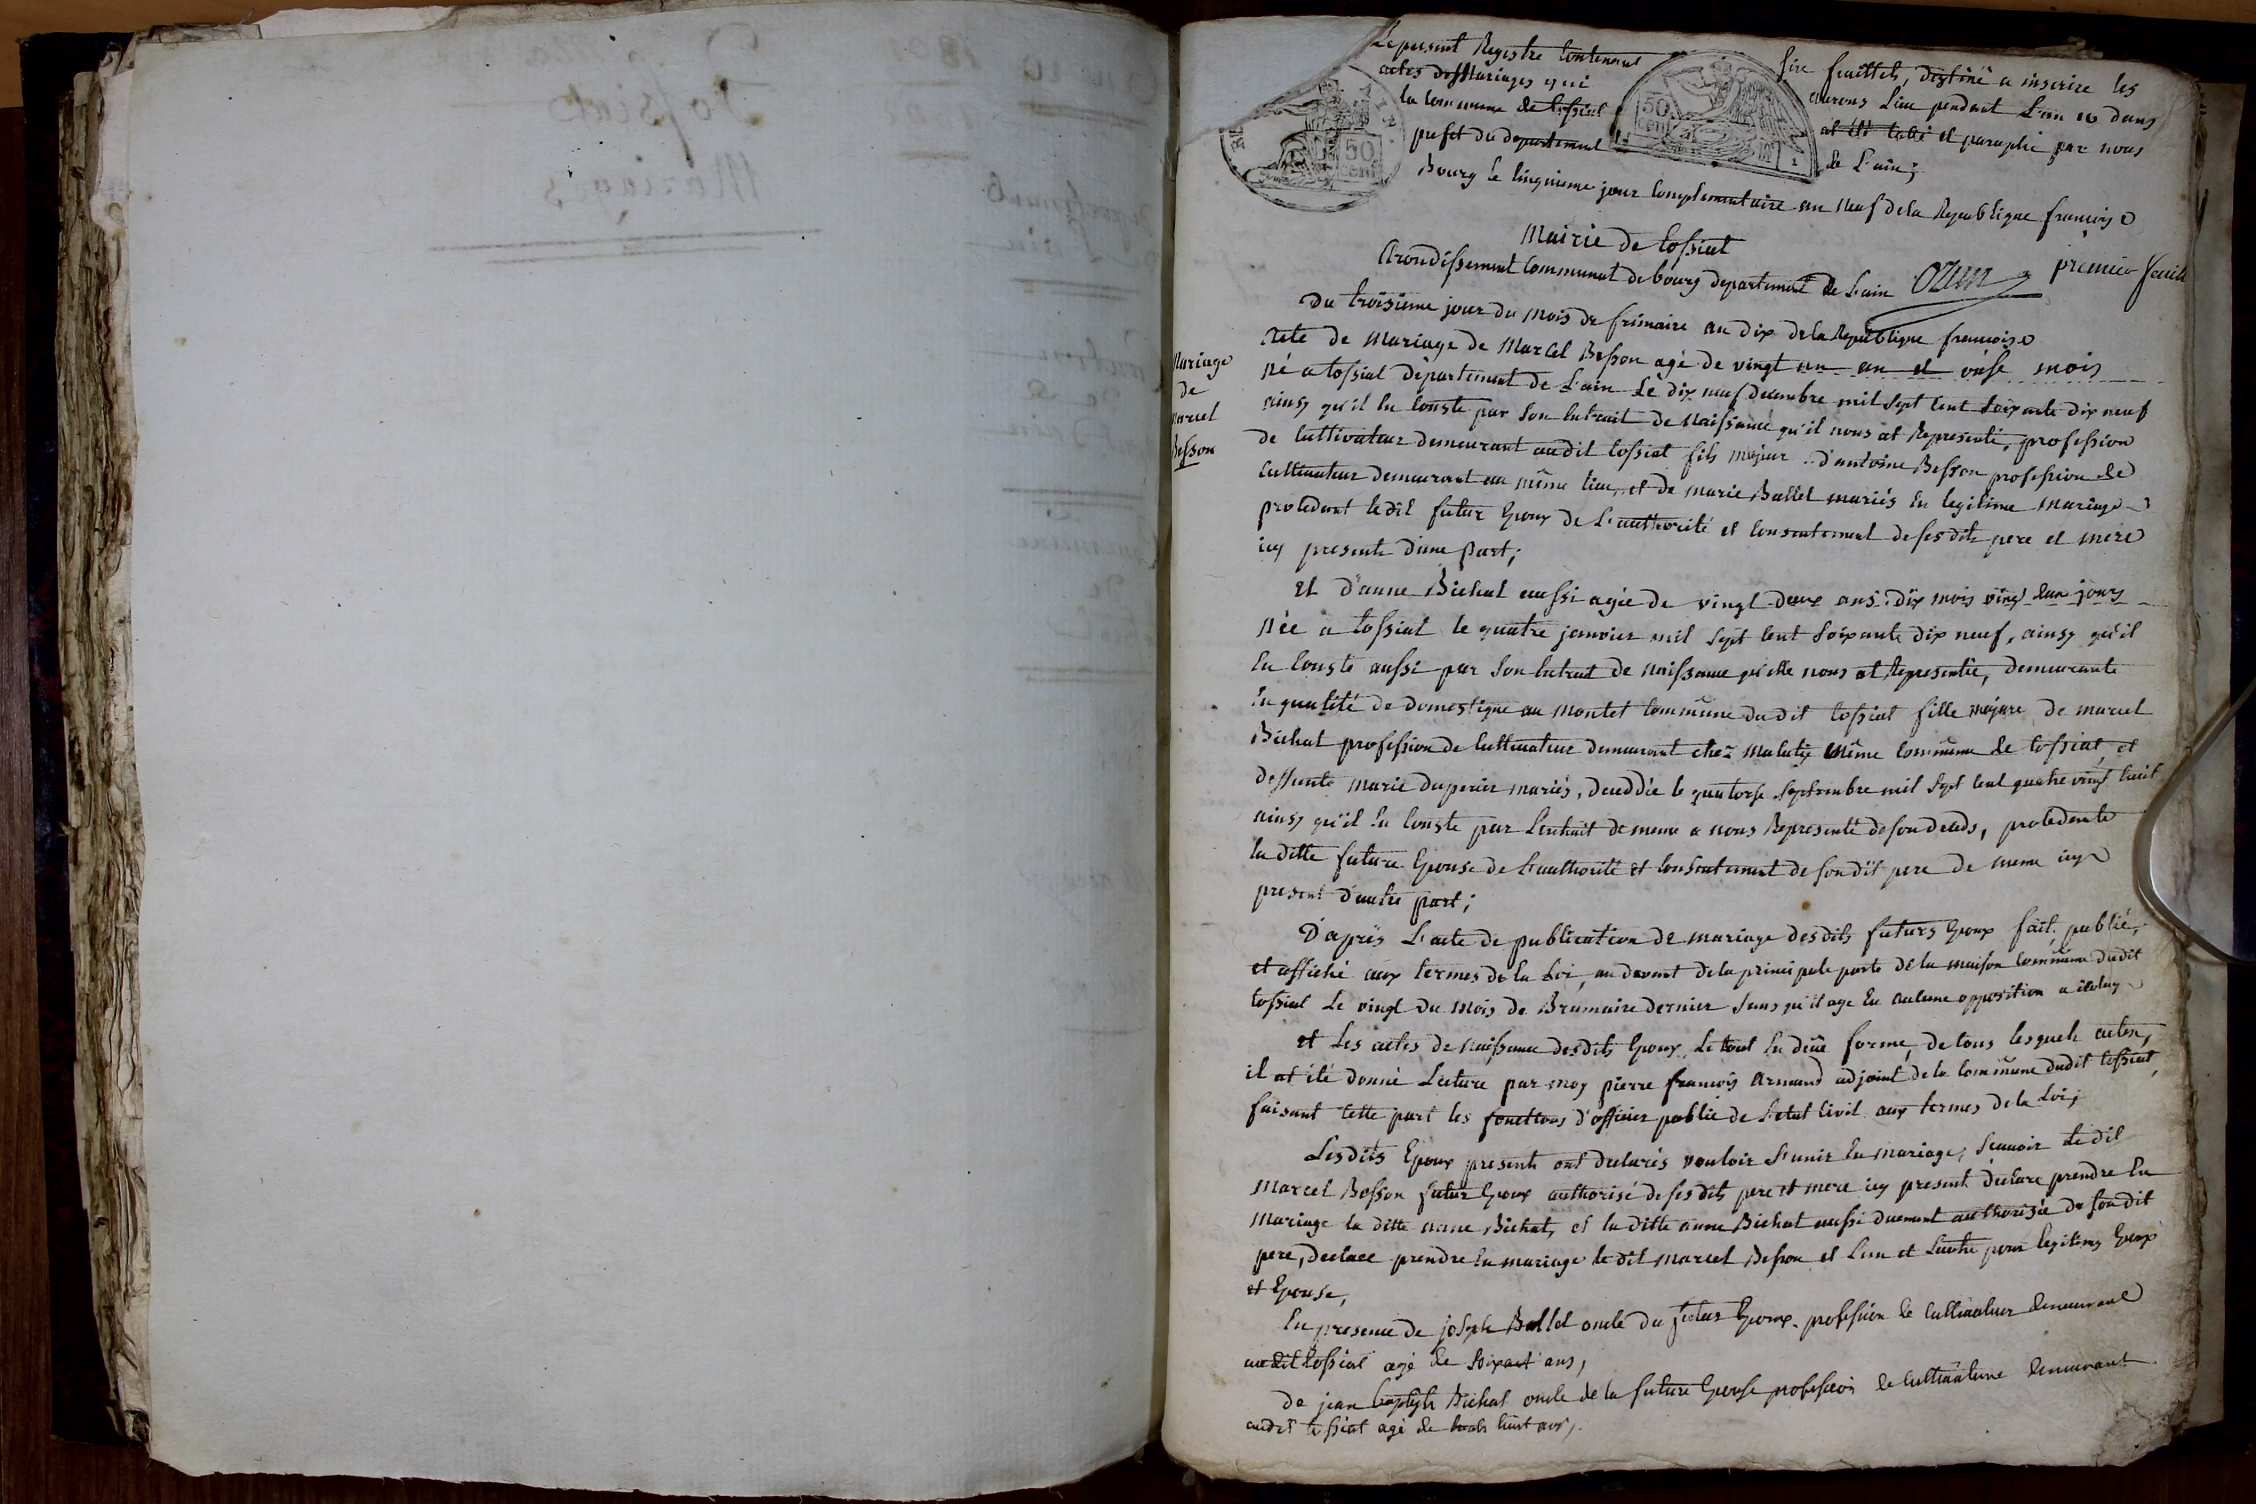 Le present Registre Contenant six feuillets, destiné a inscrire les
actes des Mariages qui auront Lieu pendant L'an 10 dans
la Commune de tossiat at été Cotté et paraphé par nous
prefet du departement de L'ain;
Bourg le Cinquieme jour Complementaire an Neuf de la Republique françoise
50
cent
50
cent
Mairie de tossiat
Arondissement Communal de bourg departement de L'ain Ozun premier feuillet
Du troisieme jour du Mois de frimaire an dix de la Republique françoise
Mariage
de
Marcel
Besson
Acte de Mariage de Marcel Besson agé de vingt un an et onse mois
Né a tossiat département de L'ain Le dix neuf decembre mil sept Cent Soixante dix neuf
ainsy qu'il En Conste par Son Extrait de Naissance qu'il nous at Representé, profession
de Cultivateur demeurant audit tossiat fils majeur d'antoine Besson profession de
Cultivateur demeurant au même lieu, et de marie Ballet mariés En legitime mariage
procedant ledit futur Epoux de L'authorité et Consentement de ses dits pere et mere
icy presents d'une Part;
Et d'anne Bichat aussi agée de vingt deux ans dix mois vingt jours
Née a tossiat le quatre janvier mil Sept Cent Soixante dix neuf, ainsy qu'il
En Conste aussi par Son Extrait de naissance qu'elle nous at Representée, demeurante
En qualité de Domestique au montet Commune dudit tossiat fille majeure de marcel
Bichat profession de Cultivateur demeurant chez Malaty même Commune de tossiat, et
deffunte marie duperier mariés, deceddée le quatorse Septembre mil Sept Cent quatre vingt huit
ainsy qu'il En Conste par L'extrait de meme a nous Representé de son deceds, procedente
la ditte future Epouse de L'authorité et Consentement de son dit pere de meme icy
present d'autre part;
D'après L'acte de publication de mariage desdits futurs Epoux fait, publié,
et affiché aux termes de la Loi, au devant de la principale porte de la maison Commune dudit
tossiat Le vingt du Mois de Brumaire dernier Sans qu'il aye Eu aucune opposition a iceluy
et Les actes de naissance desdits Epoux, Le tout En düe forme, de tous lesquels actes,
il at été donné Lecture par moy pierre françois Armand adjoint de la Commune dudit tossiat,
faisant Cette part les fonctions d'officier public de L'etat Civil aux termes de la Loi;
Lesdits Epoux presents ont declarés vouloir S'unir En mariage, Scavoir ledit
Marcel Besson futur Epoux authorisé de ses dits pere et mere icy present declare prendre En
Mariage la ditte anne Bichat, et la ditte anne Bichat aussi duement authorisée de Son dit
pere, declare prendre En mariage ledit marcel Besson et L'un et L'autre pour legitimes Epoux
et Epouse,
En presence de joseph Ballet oncle du futur Epoux profession de Cultivateur demeurant
audit tossiat agé de Soixant ans,
De jean baptiste Bichat oncle de la future Epouse profession de Cultivateur demeurant
audit tossiat agé de huit ans,